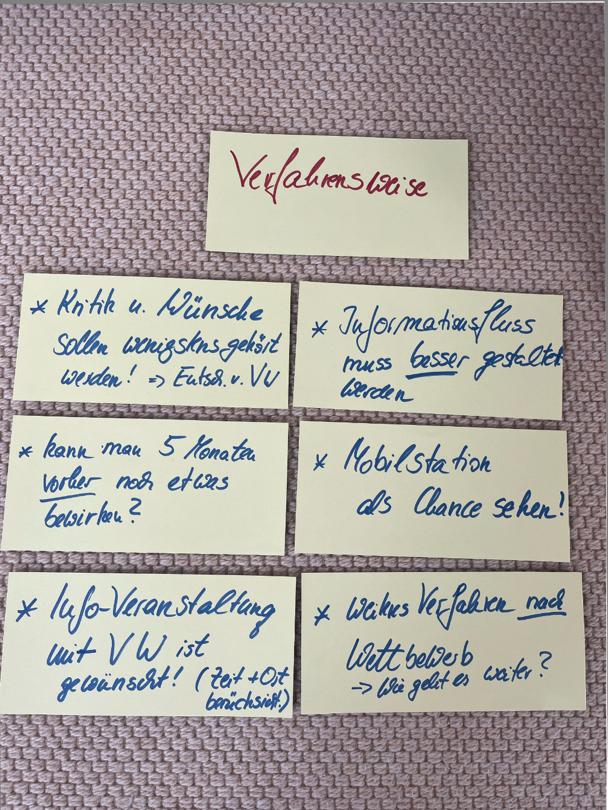 Verfahrensweise
* Kritik u. Wünsche
sollen wenigstens gehört
werden! => Entsch. v. VV
* Informationsfluss
muss besser gestaltet
werden
* kann man 5 Monaten
vorher noch etwas
bewirken?
* Mobilstation
als Chance sehen!
* Info-Veranstaltung
mit VW ist
gewünscht! (Zeit + Ort
berücksicht.)
* weiteres Verfahren nach
Wettbewerb
-> Wie geht es weiter?